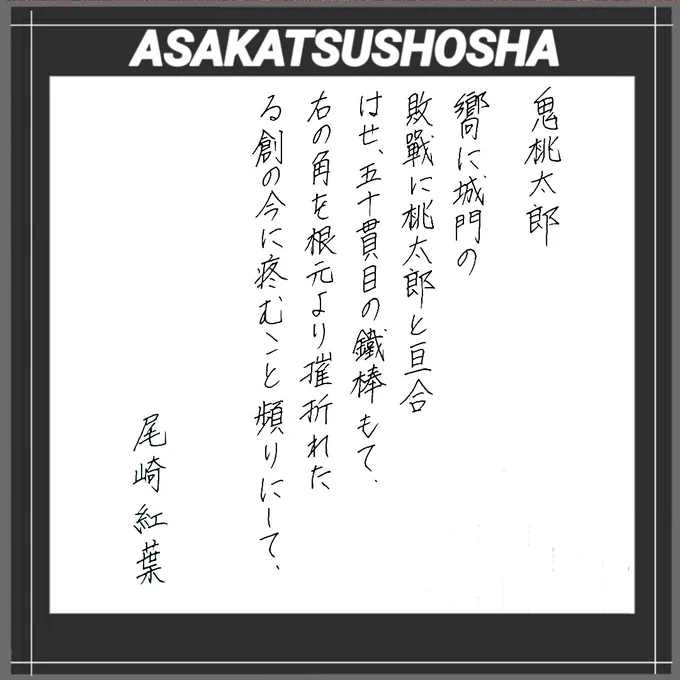 ASAKATSUSHOSHA
鬼桃太郎
嚮に城門の
敗戰に桃太郎と亘合
はせ、五十貫目の鐵棒もて、
右の角を根元より摧折れた
る創の今に疼むこと頻りにして、
尾崎紅葉